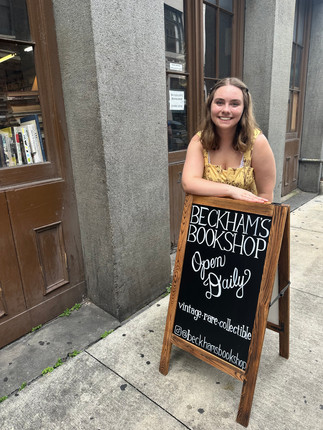 BECKHAM'S
BOOKSHOP
Open
Daily
vintage·rare·collectible
@Beckhamsbookshop